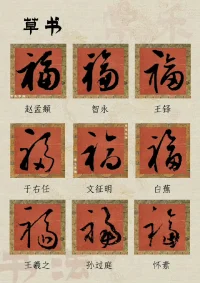 草书
福 福 福
赵孟頫 智永 王铎
福 福 福
于右任 文征明 白蕉
福 福 福
王羲之 孙过庭 怀素